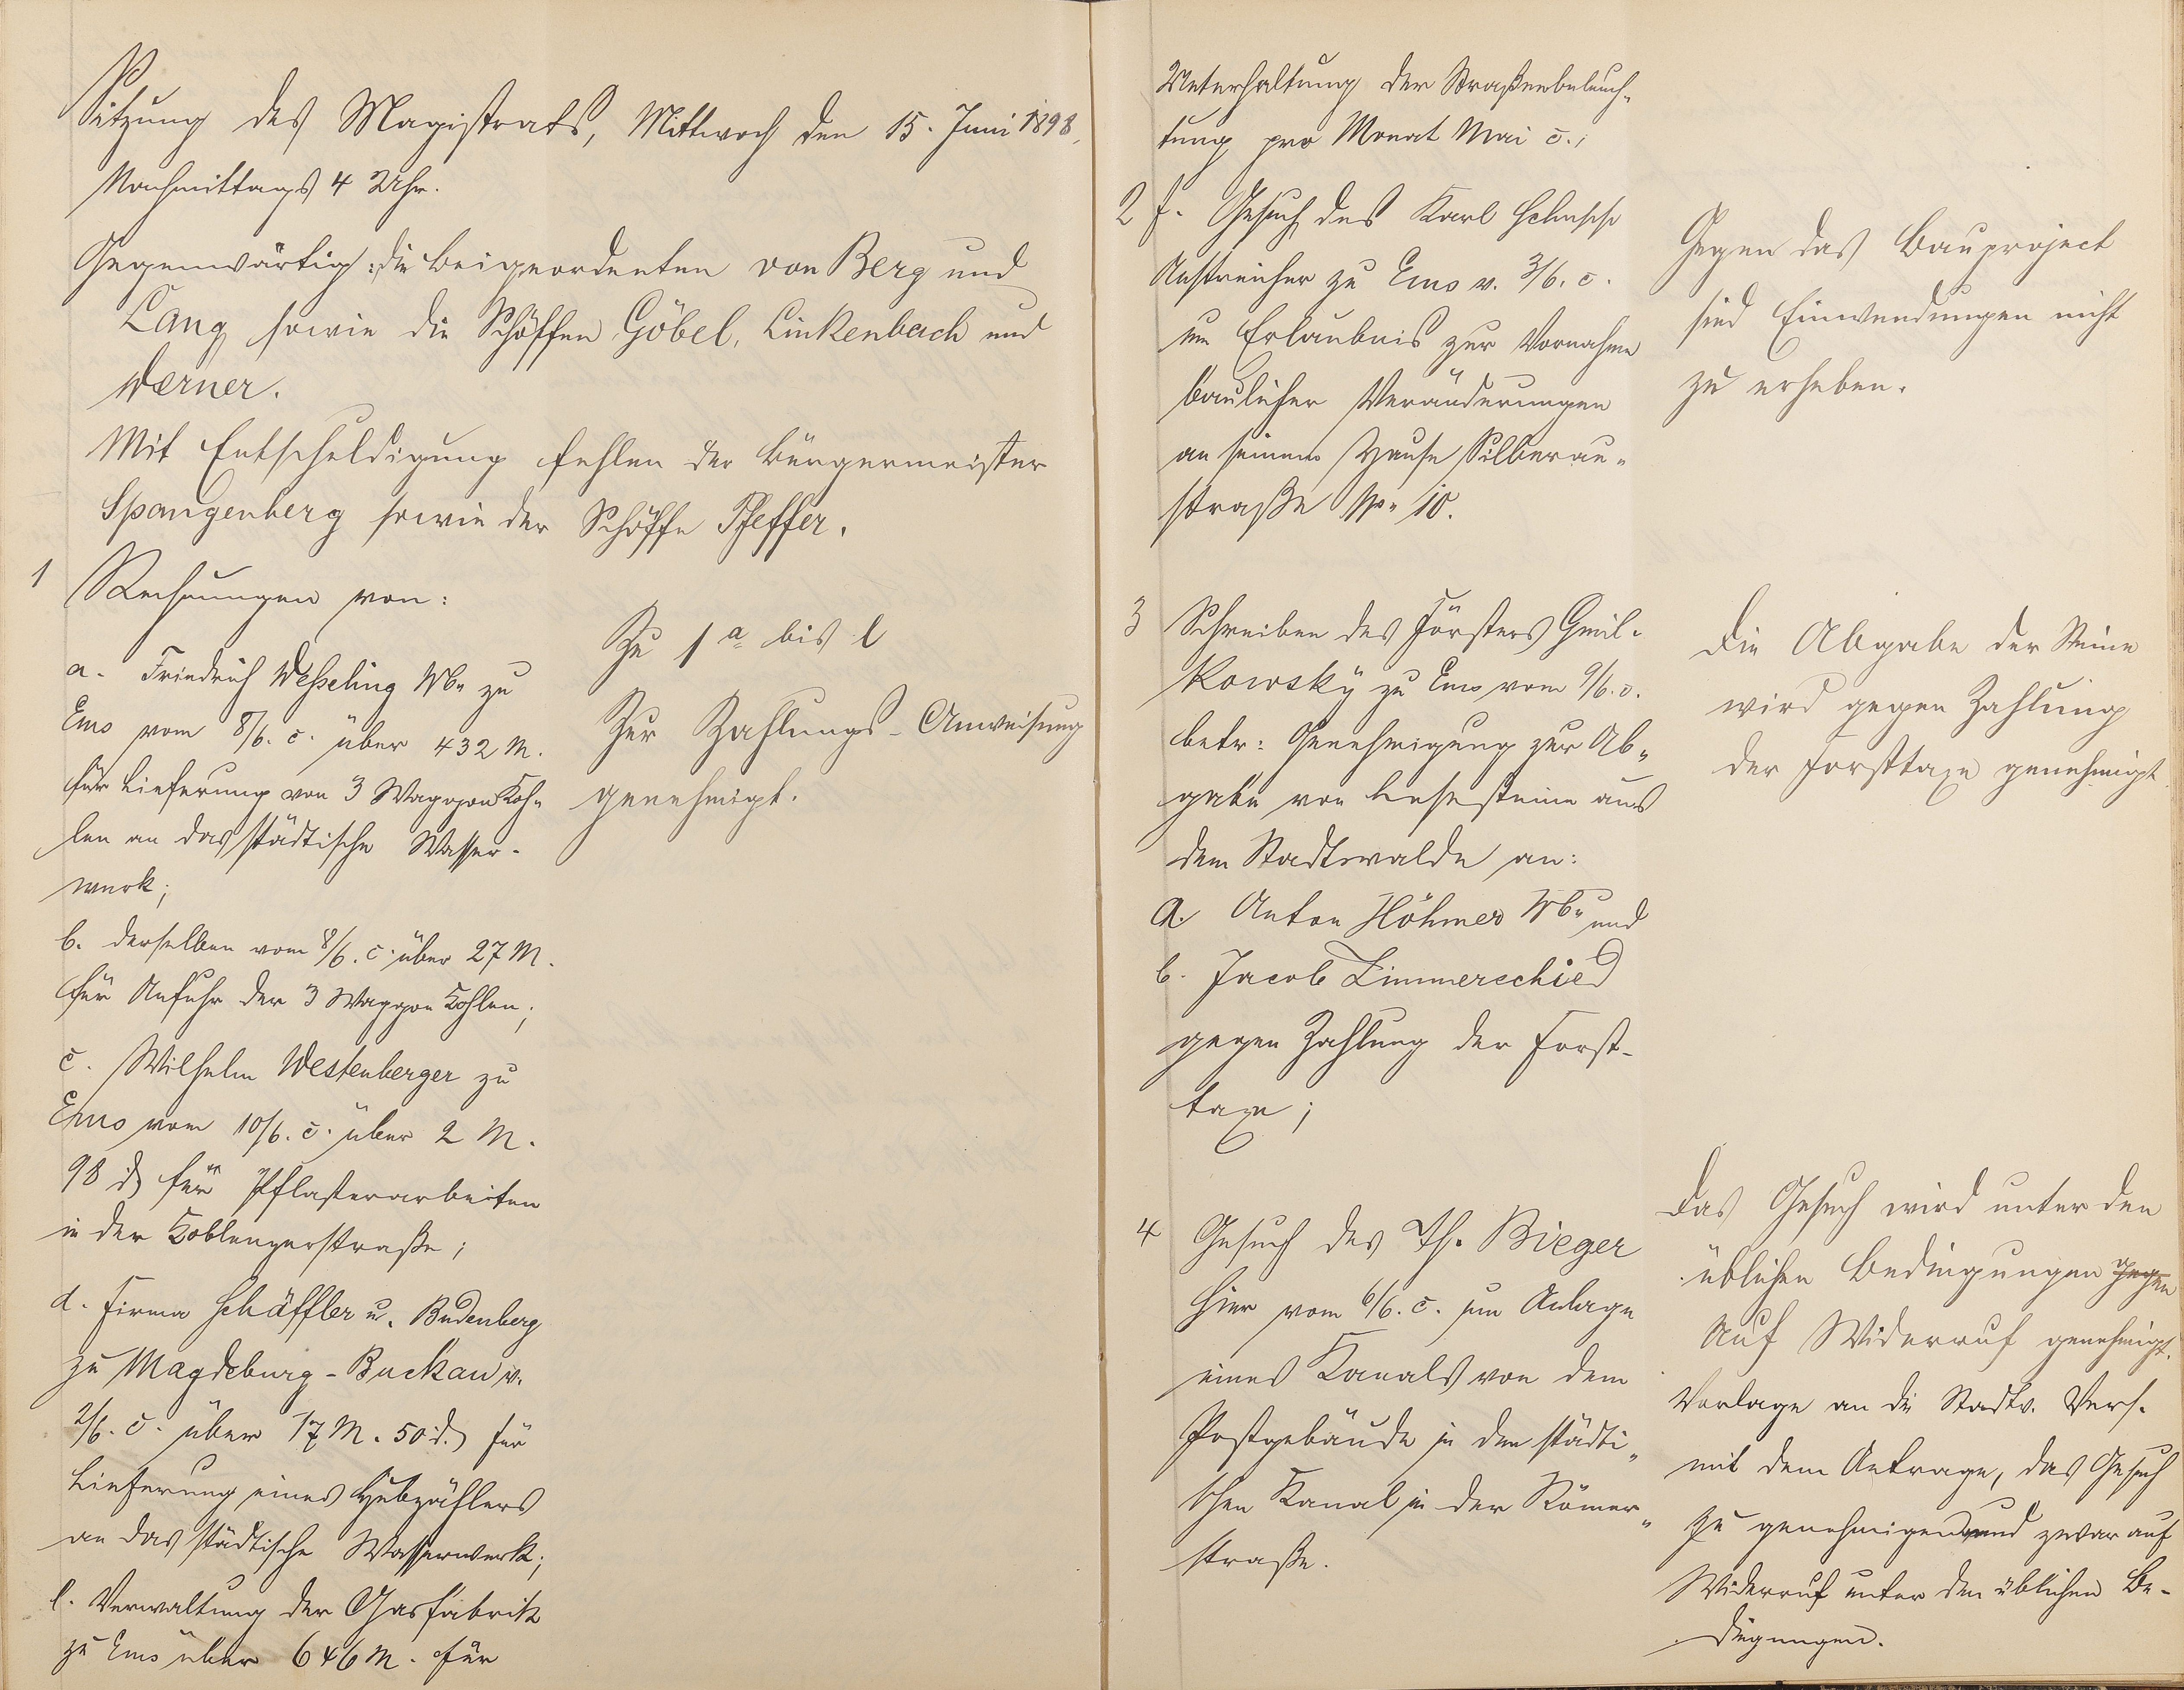 Sitzung des Magistrats, Mittwoch den 15. Juni 1898,
Nachmittags 4 Uhr.
Gegenwärtig: die Beigeordneten von Berg und
Lang sowie die Schöffen Göbel, Linkenbach und
Werner.
Mit Entschuldigung fehlen der Bürgermeister
Spangenberg sowie der Schöffe Pfeffer.
1 Rechnungen von:
a. Friedrich Wesseling Wb. zu
Ems vom 8/6. c. über 432 M.
für Lieferung von 3 Waggon Koh-
len an das städtische Wasser-
werk;
b. derselben vom 8/6. c. über 27 M.
für Anfuhr der 3 Waggon Kohlen;
c. Wilhelm Westenberger zu
Ems vom 10/6. c. über 2 M.
98 d für Pflasterarbeiten
in der Koblenzerstraße;
d. Firma Schäffler u. Budenberg
zu Magdeburg-Buckau v.
2/6. c. über 17 M. 50 d. für
Lieferung eines Hubzählers
an das städtische Wasserwerk;
e. Verwaltung der Gasfabrik
zu Ems über 646 M. für
Zu 1 a bis e
Zur Zahlungs-Anweisung
genehmigt.
Unterhaltung der Straßenbeleuch-
tung pro Monat Mai c.;
2 f. Gesuch des Karl
Anstreicher zu Ems v. 3/6. c.
um Erlaubnis zur Vornahme
baulicher Veränderungen
an seinem Hause Silberau-
straße No. 10.
Gegen das Bauproject
sind Einwendungen nicht
zu erheben.
3 Schreiben des Försters Gmil-
kowsky zu Ems vom 9/6. c.
betr: Genehmigung zur Ab-
gabe von Lesesteine aus
dem Stadtwalde an:
a. Anton Höhmer Wb. und
b. Jacob Zimmerschied
gegen Zahlung der Forst-
taxe;
Die Abgabe der Steine
wird gegen Zahlung
der Forsttaxe genehmigt
4 Gesuch des Th. Bieger
hier vom 6/6. c. um Anlage
eines Kanals von dem
Postgebäude in den städti-
schen Kanal in der Römer-
straße.
Das Gesuch wird unter den
üblichen Bedingungen gegen
Auf Widerruf genehmigt.
Vorlage an die Stadtv. Vers.
mit dem Antrage, das Gesuch
zu genehmigen und zwar auf
Widerruf unter den üblichen Be-
dingungen.